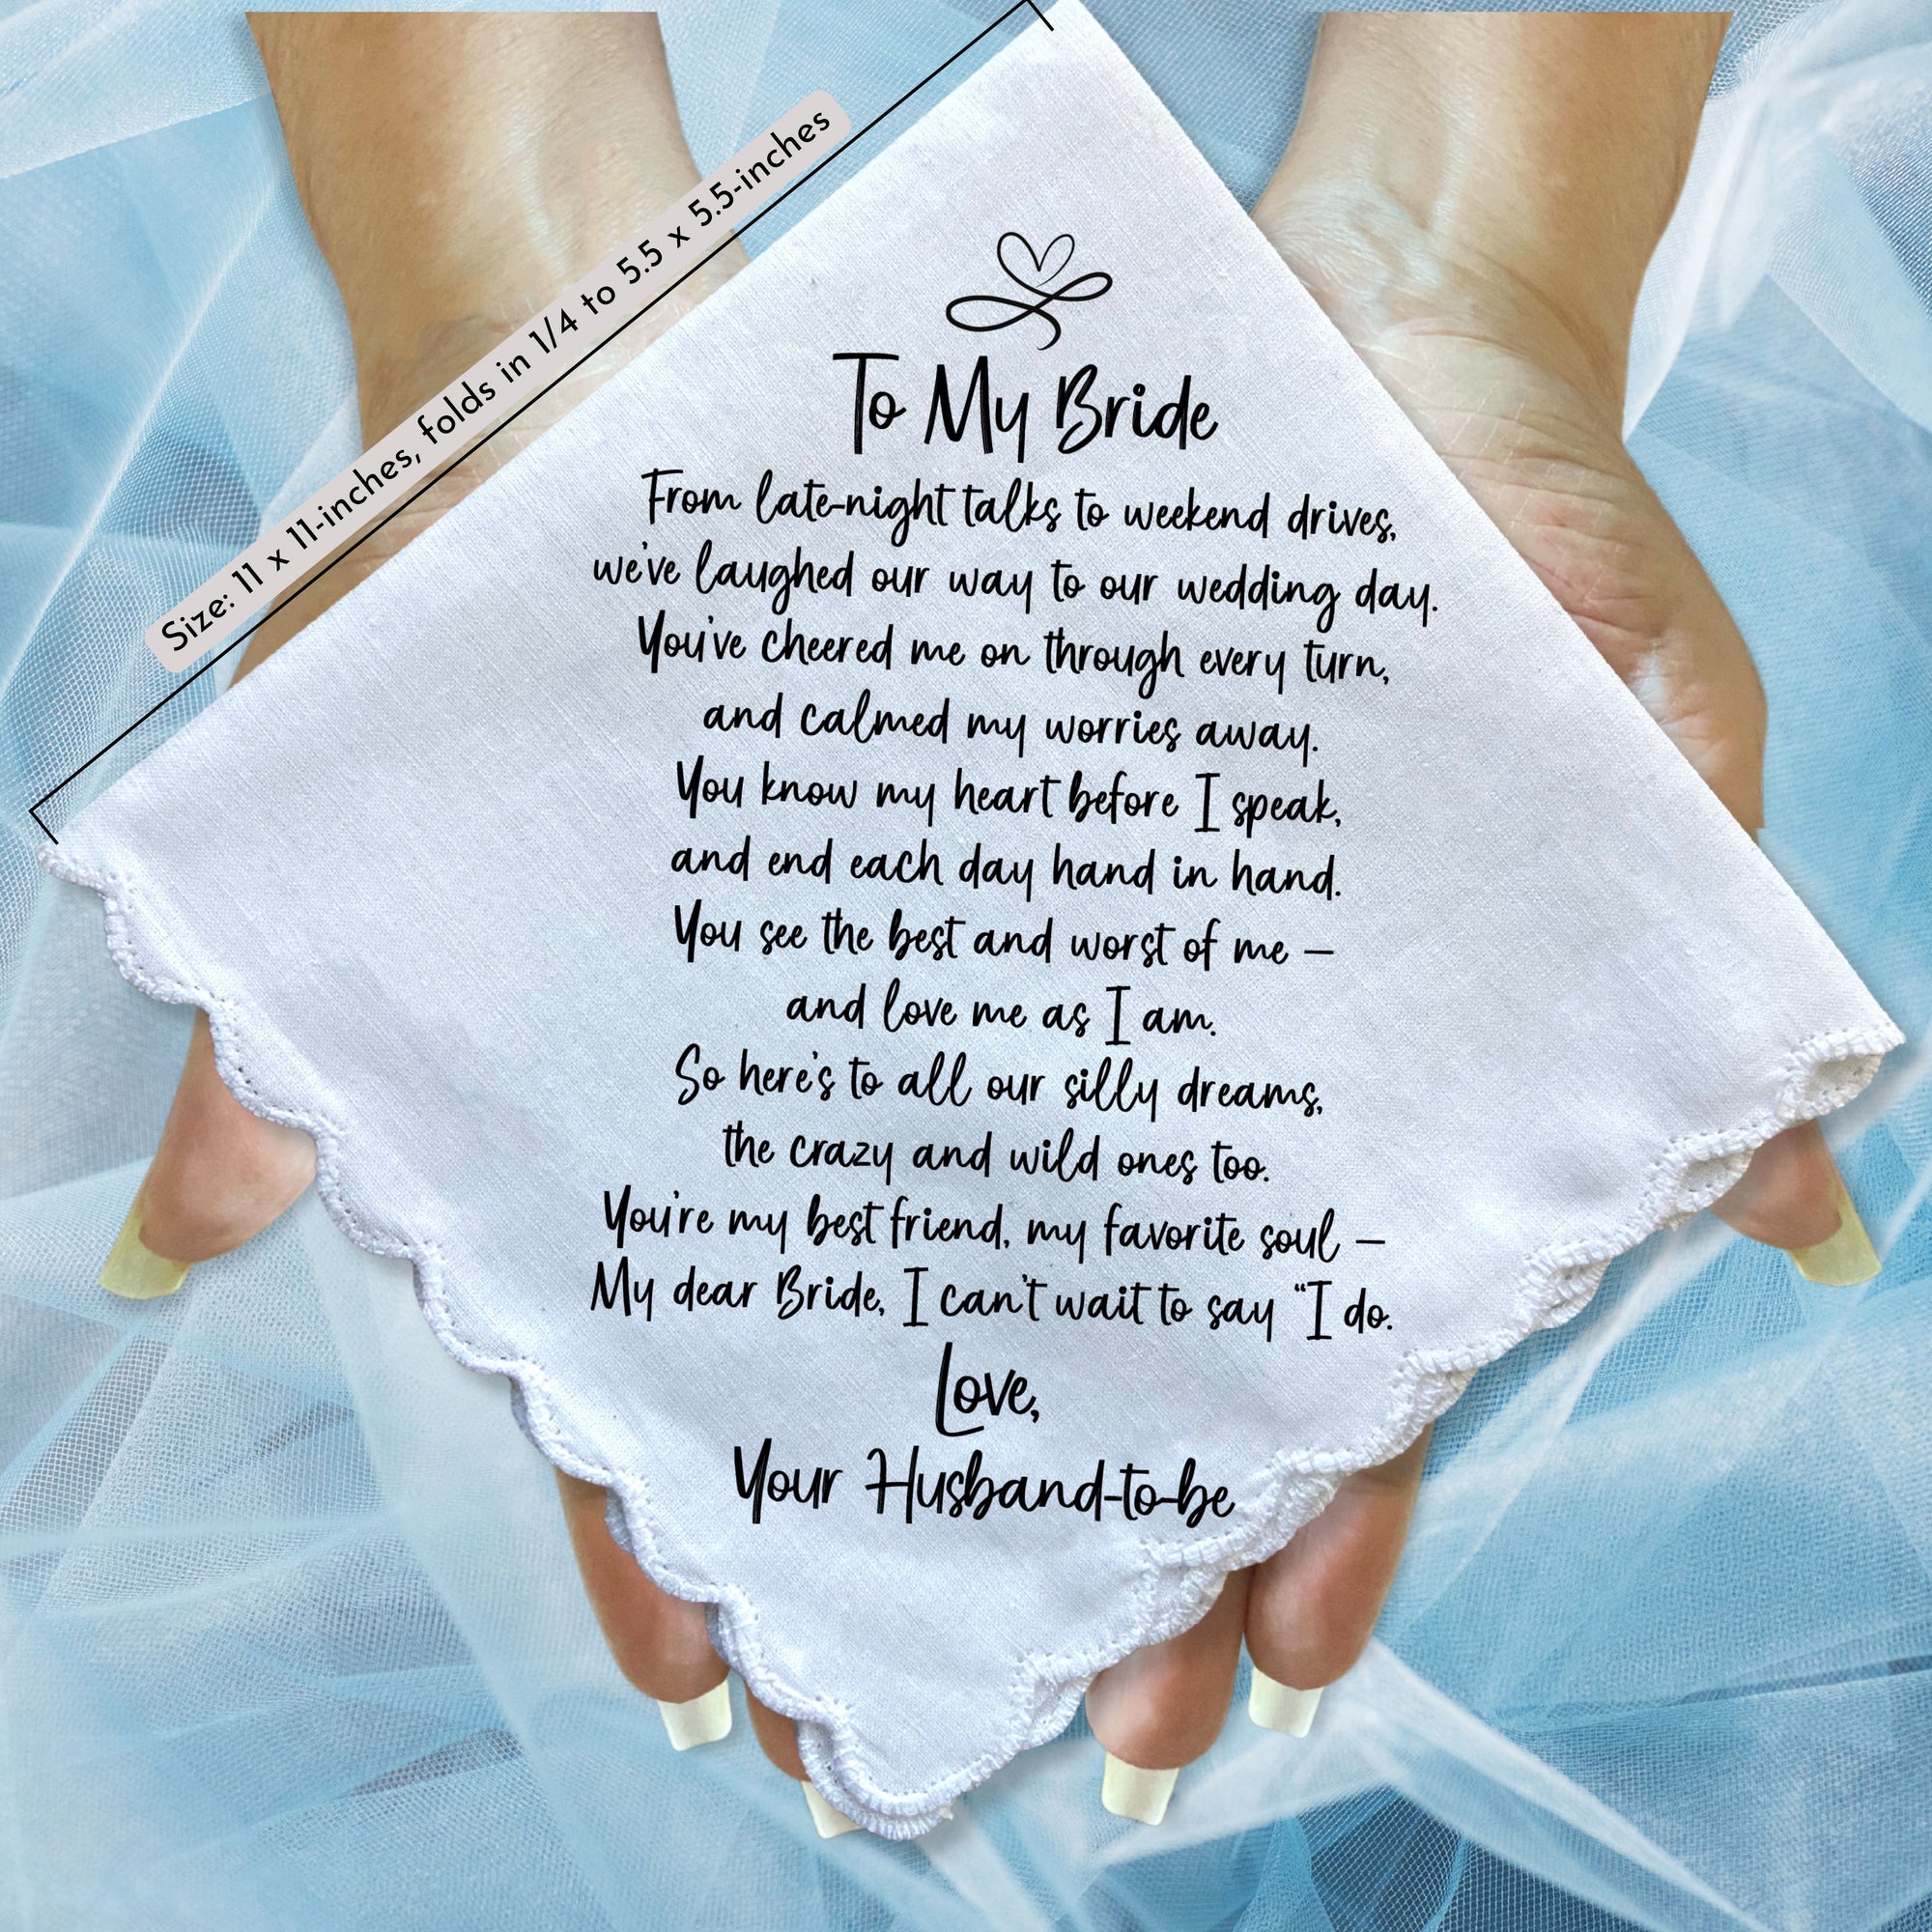 Size: 11 x 11-inches, folds in 1/4 to 5.5 x 5.5-inches
To My Bride
From late-night talks to weekend drives,
we've laughed our way to our wedding day.
You've cheered me on through every turn,
and calmed my worries away.
You know my heart before I speak,
and end each day hand in hand.
You see the best and worst of me –
and love me as I am.
So here's to all our silly dreams,
the crazy and wild ones too.
You're my best friend, my favorite soul –
My dear Bride, I can't wait to say “I do.
Love,
Your Husband-to-be